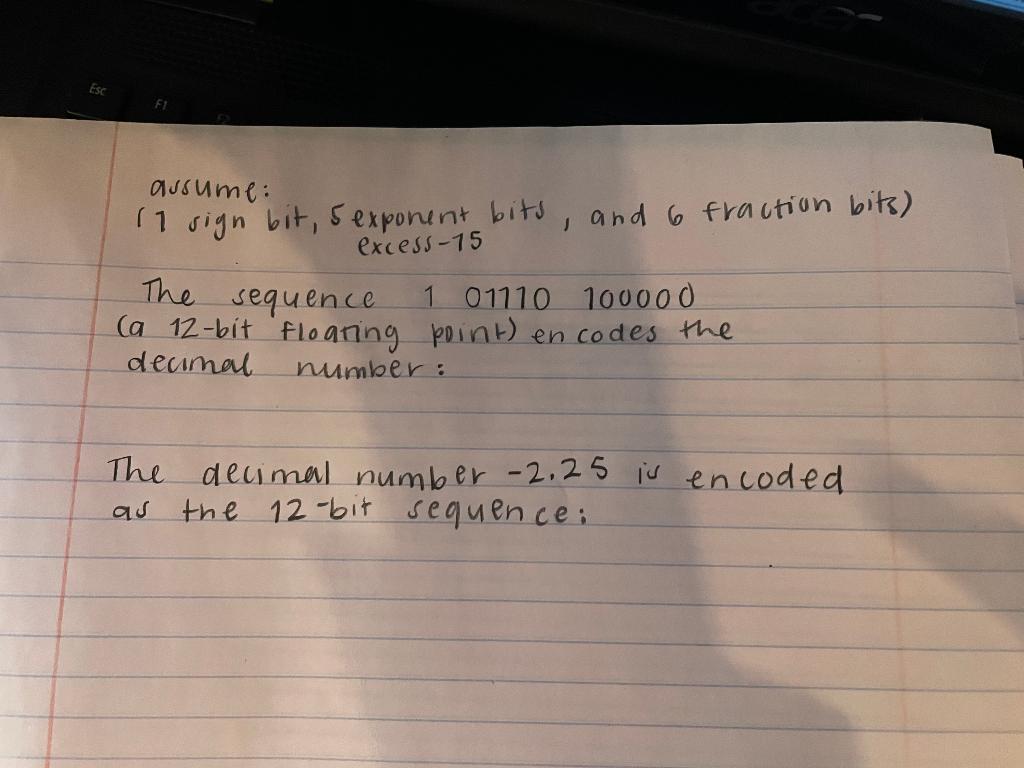 acer
Esc
F1
assume:
(1 sign bit, 5 exponent bits, and 6 fraction bits)
excess-15
The sequence 1 01110 100000
(a 12-bit floating point) encodes the
decimal number:
The decimal number -2.25 is encoded
as the 12-bit sequence: